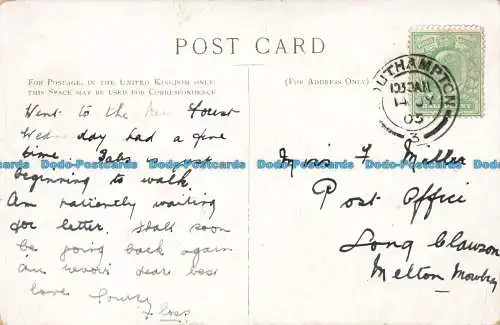 POST CARD
FOR POSTAGE, IN THE UNITED KINGDOM ONLY,
THIS SPACE MAY BE USED FOR CORRESPONDENCE
(FOR ADDRESS ONLY)
SOUTHAMPTON
1030AM
14 JY
05
3
Went to the New Forest
Wednesday had a fine
time. Babs is just
beginning to walk.
Am patiently waiting
for letter. Shall soon
be going back again
au revoir dear best
love
Miss F Mellor
Post Office
Long Clawson
Melton Mowbray
Dodo-Postcards Dodo-Postcards Dodo-Postcards Dodo-Postcards